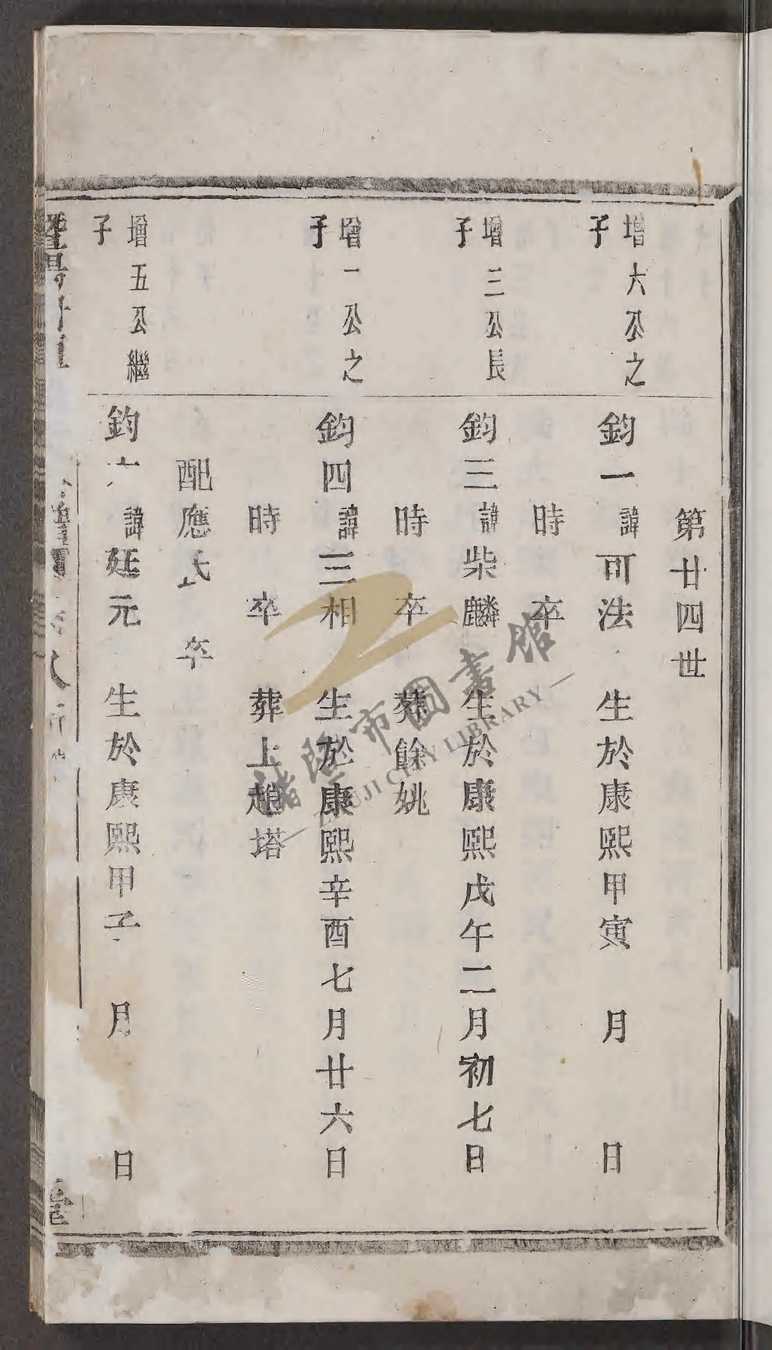 第廿四世
增六公之
子
鈞一 諱 可法 生於康熙甲寅 月 日
時 卒
增三公長
子
鈞三 諱 柴麟 生於康熙戊午二月初七日
時 卒 葬餘姚
增一公之
子
鈞四 諱 三相 生於康熙辛酉七月廿六日
時 卒 葬上趙塔
配應氏 卒
增五公繼
子
鈞六 諱 廷元 生於康熙甲子 月 日
諸暨市圖書館
ZHUJI CITY LIBRARY